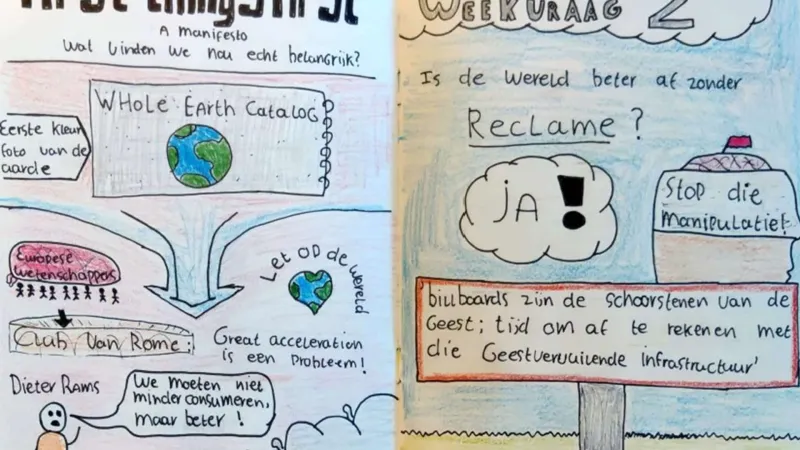 First things first
A manifesto
Wat vinden we nou echt belangrijk?
Eerste kleur
foto van de
aarde
WHOLE EARTH CATALOG
Europese
wetenschappers
Let op de wereld
Club Van Rome;
Great acceleration
is een probleem!
Dieter Rams
We moeten niet
minder consumeren,
maar beter!
WEEKVRAAG 2
Is de wereld beter af zonder
Reclame?
JA!
Stop die
manipulatie!
billboards zijn de schoorstenen van de
Geest; tijd om af te rekenen met
die Geestvervuilende infrastructuur'